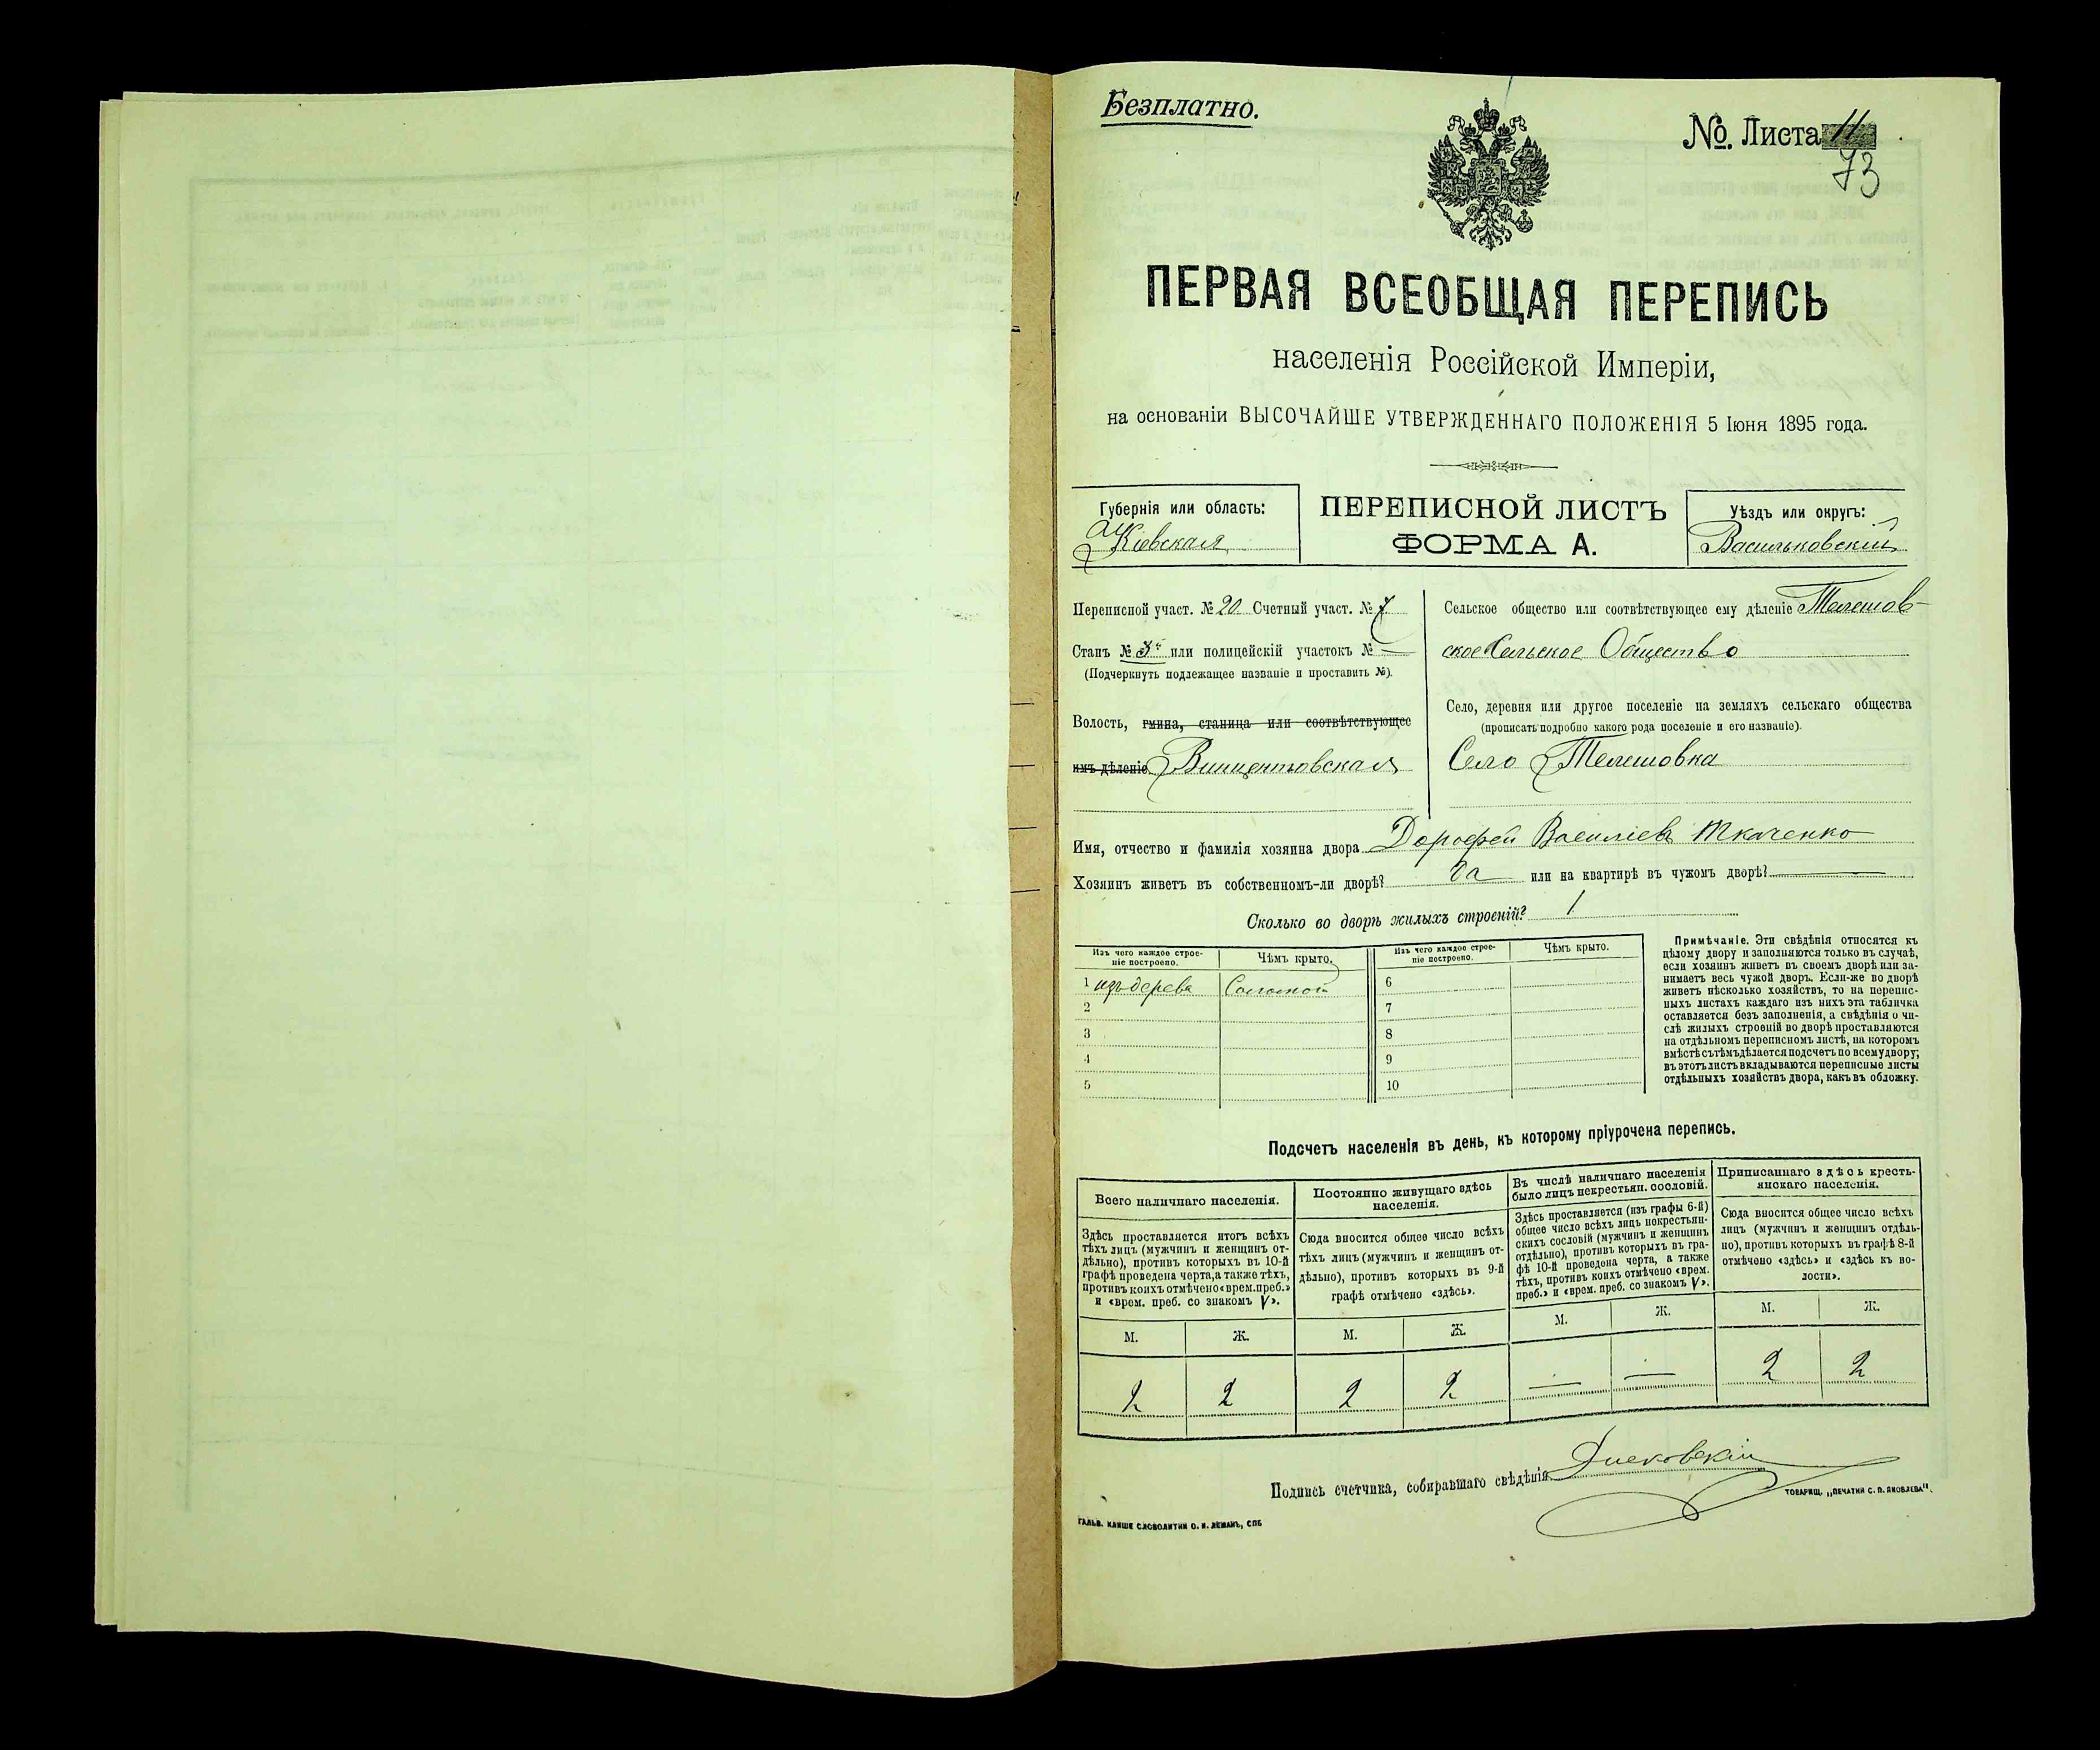 Безплатно.
№. Листа 11
73
ПЕРВАЯ ВСЕОБЩАЯ ПЕРЕПИСЬ
населенія Россійской Имперіи,
на основаніи ВЫСОЧАЙШЕ УТВЕРЖДЕННАГО ПОЛОЖЕНІЯ 5 Іюня 1895 года.
Губернія или область:
Кіевская
ПЕРЕПИСНОЙ ЛИСТЪ
ФОРМА А.
Уѣздъ или округъ:
Васильковскій
Переписной участ. № 20 Счетный участ. № 7
Станъ № 3й или полицейскій участокъ № —
(Подчеркнуть подлежащее названіе и проставить №).
Волость, гмина, станица или соотвѣтствующее
имъ дѣленіе Винцентовская
Сельское общество или соотвѣтствующее ему дѣленіе Телешов-
ское Сельское Общество
Село, деревня или другое поселеніе на земляхъ сельскаго общества
(прописать подробно какого рода поселеніе и его названіе).
Село Телешовка
Имя, отчество и фамилія хозяина двора Дорофей Василіевъ Ткаченко
Хозяинъ живетъ въ собственномъ-ли дворѣ? да или на квартирѣ въ чужомъ дворѣ? —
Сколько во дворѣ жилыхъ строеній? 1
Изъ чего каждое строе-
ніе построено.
Чѣмъ крыто.
Изъ чего каждое строе-
ніе построено.
Чѣмъ крыто.
1 изъ дерева Соломой 6
2 7
3 8
4 9
5 10
Примѣчаніе. Эти свѣдѣнія относятся къ
цѣлому двору и заполняются только въ случаѣ,
если хозяинъ живетъ въ своемъ дворѣ или за-
нимаетъ весь чужой дворъ. Если-же во дворѣ
живетъ нѣсколько хозяйствъ, то на перепис-
ныхъ листахъ каждаго изъ нихъ эта табличка
оставляется безъ заполненія, а свѣдѣнія о чи-
слѣ жилыхъ строеній во дворѣ проставляются
на отдѣльномъ переписномъ листѣ, на которомъ
вмѣстѣ съ тѣмъ дѣлается подсчетъ по всему двору;
въ этотъ листъ вкладываются переписные листы
отдѣльныхъ хозяйствъ двора, какъ въ обложку.
Подсчетъ населенія въ день, къ которому пріурочена перепись.
Всего наличнаго населенія.
Здѣсь проставляется итогъ всѣхъ
тѣхъ лицъ (мужчинъ и женщинъ от-
дѣльно), противъ которыхъ въ 10-й
графѣ проведена черта, а также тѣхъ,
противъ коихъ отмѣчено «врем. преб.»
и «врем. преб. со знакомъ V».
Постоянно живущаго здѣсь
населенія.
Сюда вносится общее число всѣхъ
тѣхъ лицъ (мужчинъ и женщинъ от-
дѣльно), противъ которыхъ въ 9-й
графѣ отмѣчено «здѣсь».
Въ числѣ наличнаго населенія
было лицъ некрестьян. сословій.
Здѣсь проставляется (изъ графы 6-й)
общее число всѣхъ лицъ некрестьян-
скихъ сословій (мужчинъ и женщинъ
отдѣльно), противъ которыхъ въ гра-
фѣ 10-й проведена черта, а также
тѣхъ, противъ коихъ отмѣчено «врем.
преб.» и «врем. преб. со знакомъ V».
Приписаннаго здѣсь кресть-
янскаго населенія.
Сюда вносится общее число всѣхъ
лицъ (мужчинъ и женщинъ отдѣль-
но), противъ которыхъ въ графѣ 8-й
отмѣчено «здѣсь» и «здѣсь къ во-
лости».
М. Ж. М. Ж. М. Ж. М. Ж.
2 2 2 2 — — 2 2
Подпись счетчика, собиравшаго свѣдѣнія
ТОВАРИЩ. „ПЕЧАТНЯ С. П. ЯКОВЛЕВА".
ГАЛЬВ. КЛИШЕ СЛОВОЛИТНИ О. И. ЛЕМАНЪ, СПБ